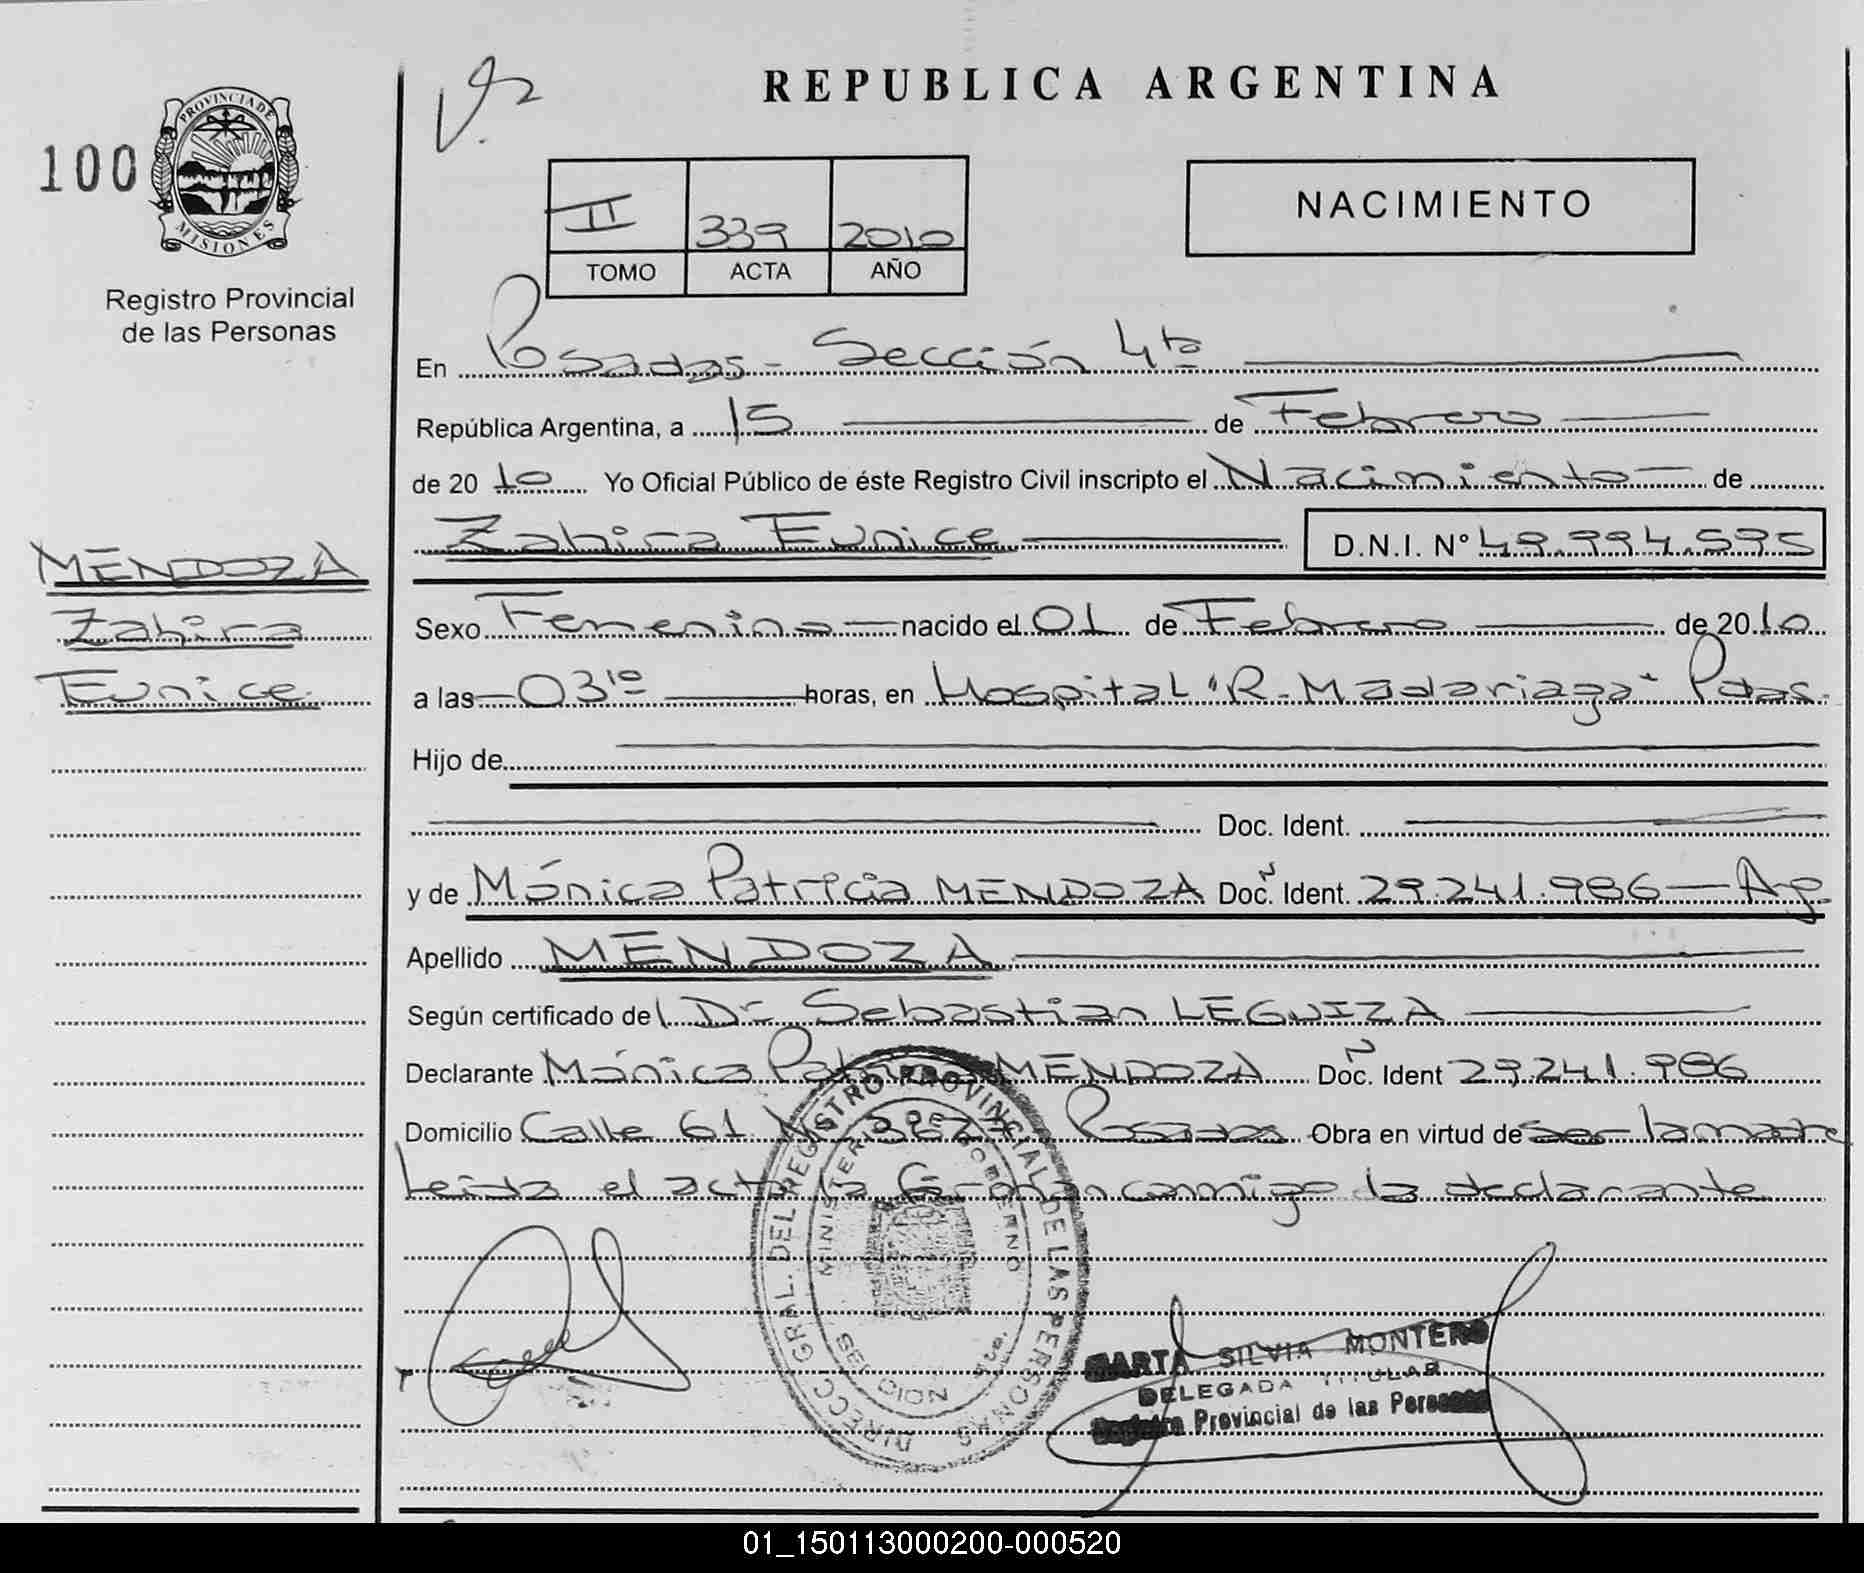 REPUBLICA ARGENTINA
100
PROVINCIA DE
MISIONES
Registro Provincial
de las Personas
II 339 2010
TOMO ACTA AÑO
NACIMIENTO
En Posadas - Sección 4ta
República Argentina, a 15 de Febrero
de 2010 Yo Oficial Público de éste Registro Civil inscripto el Nacimiento de
Zahira Eunice D.N.I. Nº 49.994.595
MENDOZA
Zahira
Eunice
Sexo Femenino nacido el 01 de Febrero de 2010
a las 03 10 horas, en Hospital "R. Madariaga" Pdas.
Hijo de
Doc. Ident.
y de Mónica Patricia MENDOZA Doc. Ident. 29.241.986 - Ap.
Apellido MENDOZA
Según certificado del Dr. Sebastian LEGUIZA
Declarante Mónica Patricia MENDOZA Doc. Ident 29.241.986
Domicilio Calle 61 Nº Posadas Obra en virtud de ser la madre
Leida el acta la conmigo la declarante
DIRECC. GRAL. DEL REGISTRO PROVINCIAL DE LAS PERSONAS
MINISTERIO DE GOBIERNO
SECCION 4ta.
MARTA SILVIA MONTERO
DELEGADA TITULAR
Registro Provincial de las Personas
01_150113000200-000520